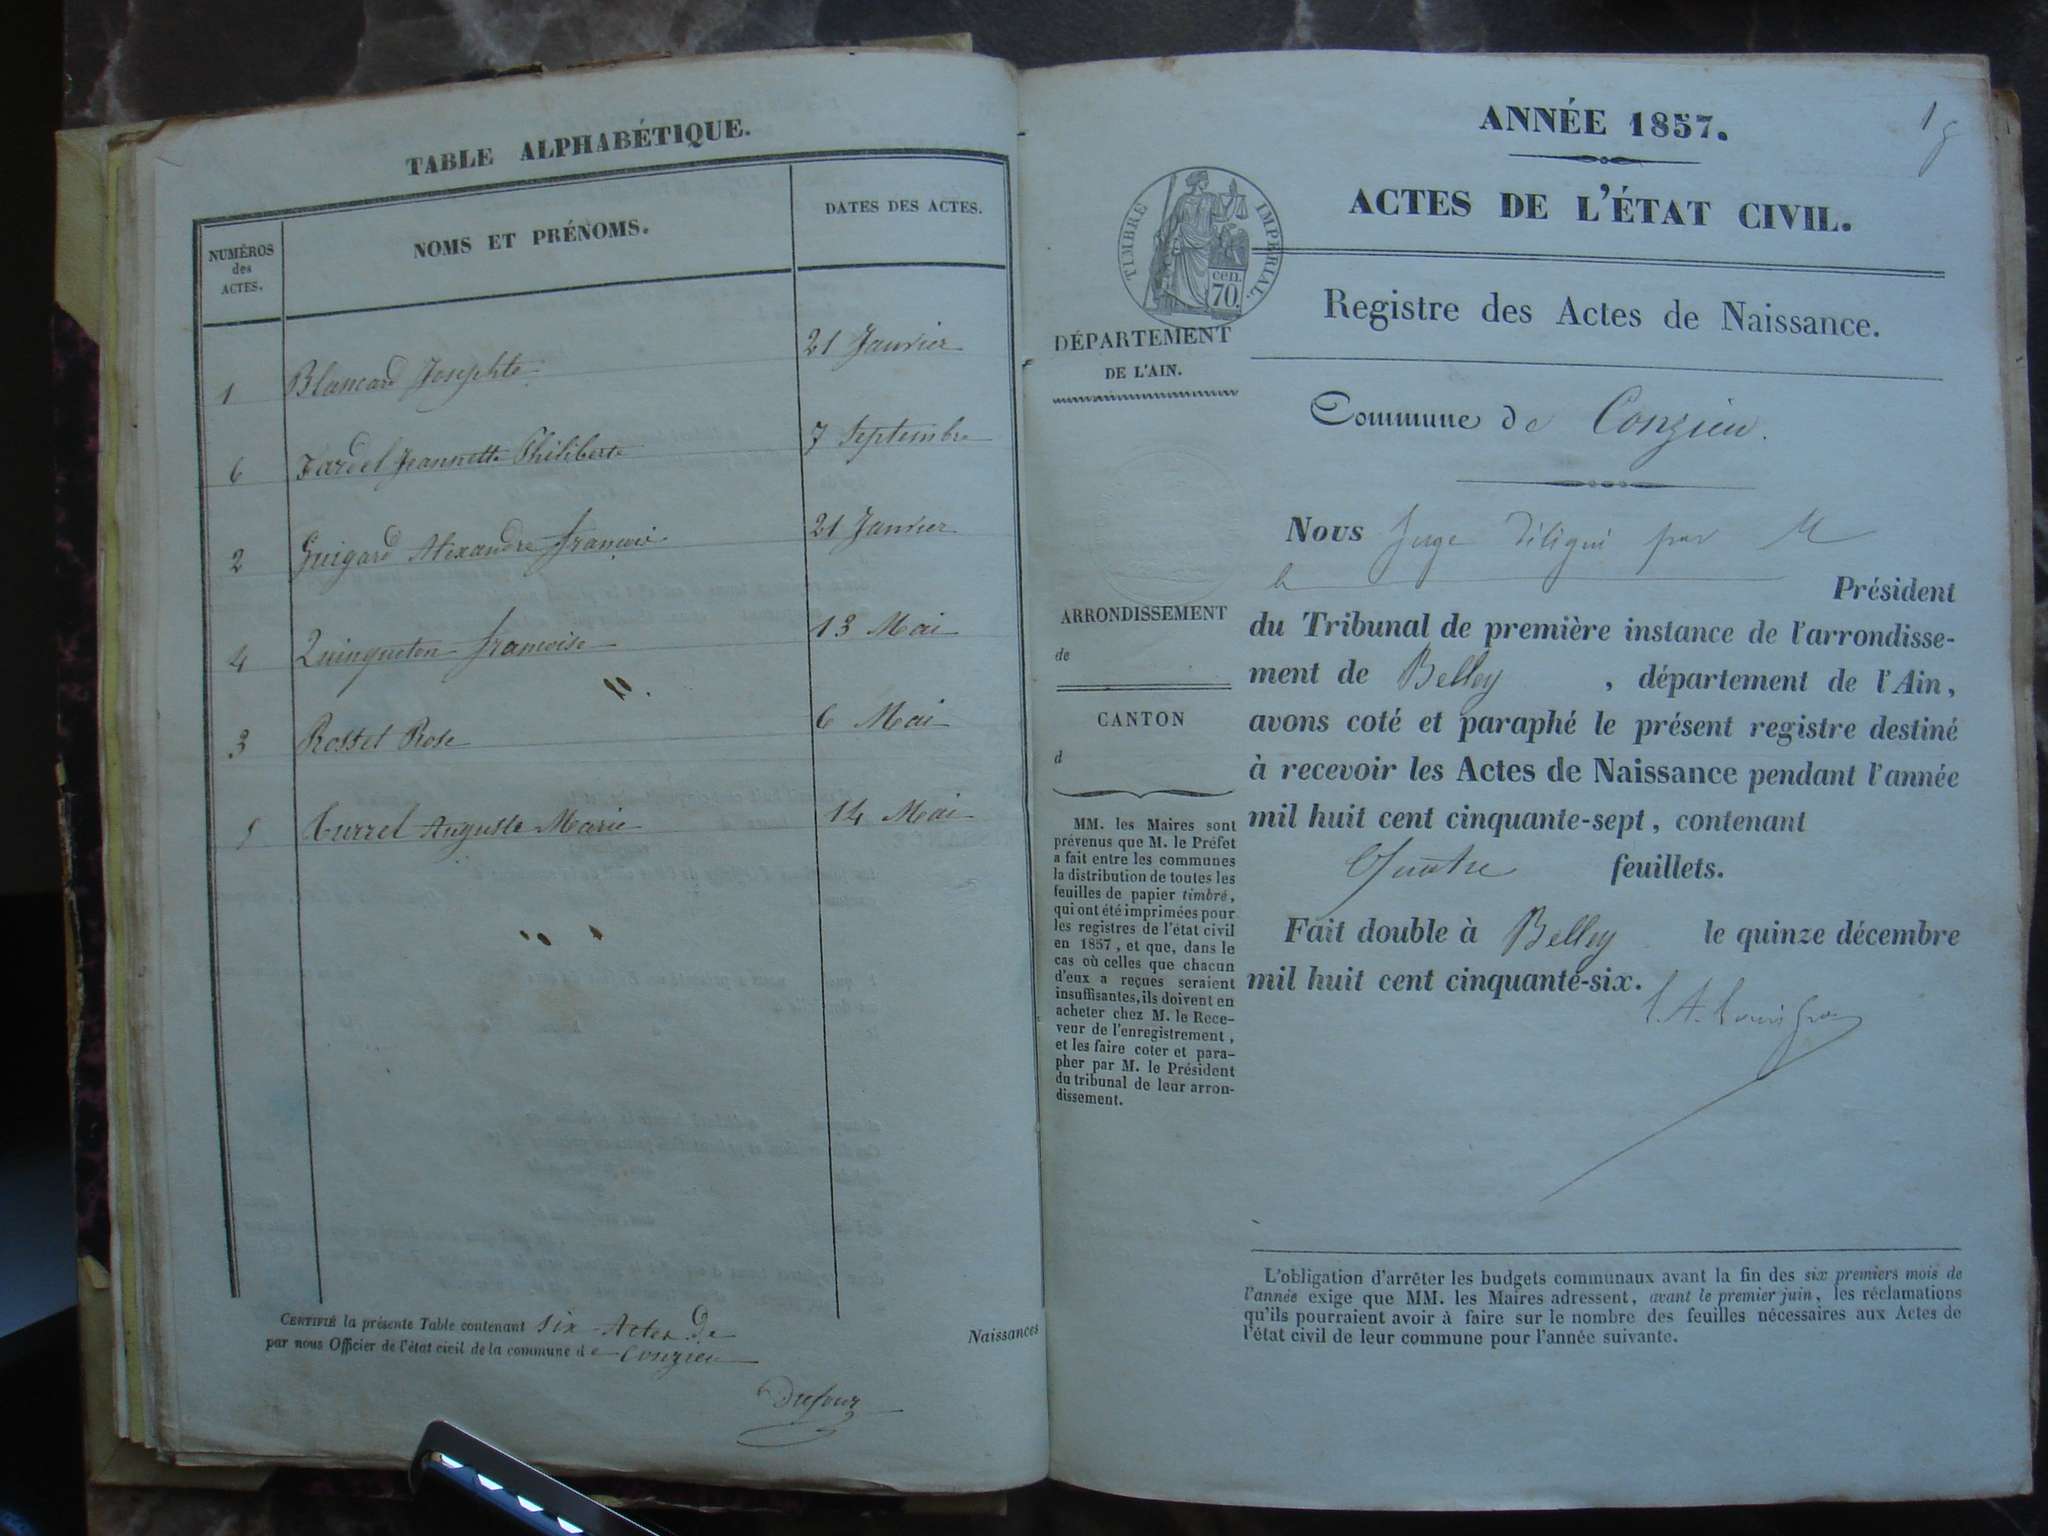 TABLE ALPHABÉTIQUE.
NUMÉROS des ACTES.
NOMS ET PRÉNOMS.
DATES DES ACTES.
1 Blancard Josephte 21 Janvier
6 Fardel Jeannette Philiberte 7 Septembre
2 Guigard Alexandre françois 21 Janvier
4 Quinqueton françoise 13 Mai
3 Rosset Rose 6 Mai
5 Turrel Auguste Marie 14 Mai
CERTIFIÉ la présente Table contenant six Actes de
par nous Officier de l'état civil de la commune de Conzieu
Dufour
Naissances
1
ANNÉE 1857.
ACTES DE L'ÉTAT CIVIL.
TIMBRE IMPÉRIAL.
cen.
70.
Registre des Actes de Naissance.
DÉPARTEMENT
DE L'AIN.
Commune de Conzieu.
Nous Juge délégué par M
le Président
du Tribunal de première instance de l'arrondisse-
ment de Belley, département de l'Ain,
avons coté et paraphé le présent registre destiné
à recevoir les Actes de Naissance pendant l'année
mil huit cent cinquante-sept, contenant
Quatre feuillets.
Fait double à Belley le quinze décembre
mil huit cent cinquante-six.
ARRONDISSEMENT
de
CANTON
d
MM. les Maires sont
prévenus que M. le Préfet
a fait entre les communes
la distribution de toutes les
feuilles de papier timbré,
qui ont été imprimées pour
les registres de l'état civil
en 1857, et que, dans le
cas où celles que chacun
d'eux a reçues seraient
insuffisantes, ils doivent en
acheter chez M. le Rece-
veur de l'enregistrement,
et les faire coter et para-
pher par M. le Président
du tribunal de leur arron-
dissement.
L'obligation d'arrêter les budgets communaux avant la fin des six premiers mois de
l'année exige que MM. les Maires adressent, avant le premier juin, les réclamations
qu'ils pourraient avoir à faire sur le nombre des feuilles nécessaires aux Actes de
l'état civil de leur commune pour l'année suivante.